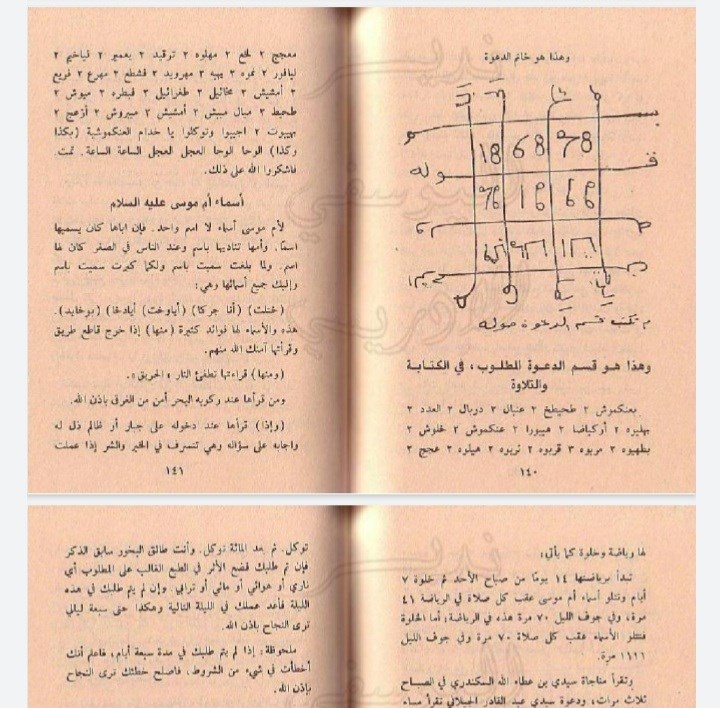 وهذا هو خاتم الدعوة
18 68 78
وهذا هو قسم الدعوة المطلوب، في الكتابة
والتلاوة
بعنكموش ٢ طحيطخ ٢ عنيال ٢ دوبال ٣ العدد ٣
يهليوه ٢ أوكياضا ٢ هيبورا ٢ عنكموش ٢ خلوش ٢
بطهيوه ٢ مربوه ٣ قربوه ٢ نربوه ٢ هيلوه ٢ عجج ٢
١٤٠
معجج ٢ لخع ٢ مهلوه ٢ توقيد ٢ يعمير ٢ قياخيم ٢
ليافور ٢ نموه ٢ يهيه ٣ مهرويد ٢ قشطع ٢ مهرع ٢ قريع
٢ أمشيش ٢ مخائيل ٢ طغرائيل ٢ قبطره ٢ ميوش ٢
طحيط ٢ ميال مبيش ٢ أمشيش ٢ ميبروش ٢ أزعج ٢
بهيوت ٢ اجيبوا وتوكلوا يا خدام العنكموشية (بكذا
وكذا) الوحا الوحا العجل العجل الساعة الساعة. تمت.
فاشكروا الله على ذلك.
أسماء أم موسى عليه السلام
لأم موسى أسماء لا اسم واحد. فإن اباها كان يسميها
اسمًا. وأمها تناديها باسم وعند الناس في الصغر كان لها
اسم. ولما بلغت سميت باسم ولكما كبرت سميت باسم
وإليك جميع أسمائها وهي:
(خنلت) (أنا جركا) (أياوخت) (أيادخا) (بوخايد).
هذه والأسماء لها فوائد كثيرة (منها) إذا خرج قاطع طريق
وقرأتها آمنك الله منهم.
(ومنها) قراءتها تطفئ النار «الحريق».
ومن قرأها عند ركوبه البحر أمن من الغرق بإذن الله.
(وإذا) قرأها عند دخوله على جبار أو ظالم ذل له
واجابه على سؤاله وهي تتصرف في الخير والشر إذا عملت
١٤١
لها ورياضة وخلوة كما يأتي:
تبدأ برياضتها ١٤ يومًا من صباح الأحد ثم خلوة ٧
أيام وتتلو أسماء أم موسى عقب كل صلاة في الرياضة ٤١
مرة، وفي جوف الليل ٧٠ مرة هذه في الرياضة؛ أما الخلوة
فتتلو الأسماء عقب كل صلاة ٧٠ مرة وفي جوف الليل
١١٢١ مرة.
وتقرأ مناجاة سيدي بن عطاء الله السكندري في الصباح
ثلاث مرات، ودعوة سيدي عبد القادر الجيلاني تقرأ مساء
توكل. ثم بعد المائة توكل. وأنت طالق البخور سابق الذكر
فإن تم طلبك فضع الأثر في الطبع الغالب على المطلوب أي
ناري أو هوائي أو مائي أو ترابي. وإن لم يتم طلبك في هذه
الليلة فأعد عملك في الليلة التالية وهكذا حتى سبعة ليالي
ترى النجاح بإذن الله.
ملحوظة: إذا لم يتم طلبك في مدة سبعة أيام، فاعلم أنك
أخطأت في شيء من الشروط، فاصلح خطئك ترى النجاح
بإذن الله.